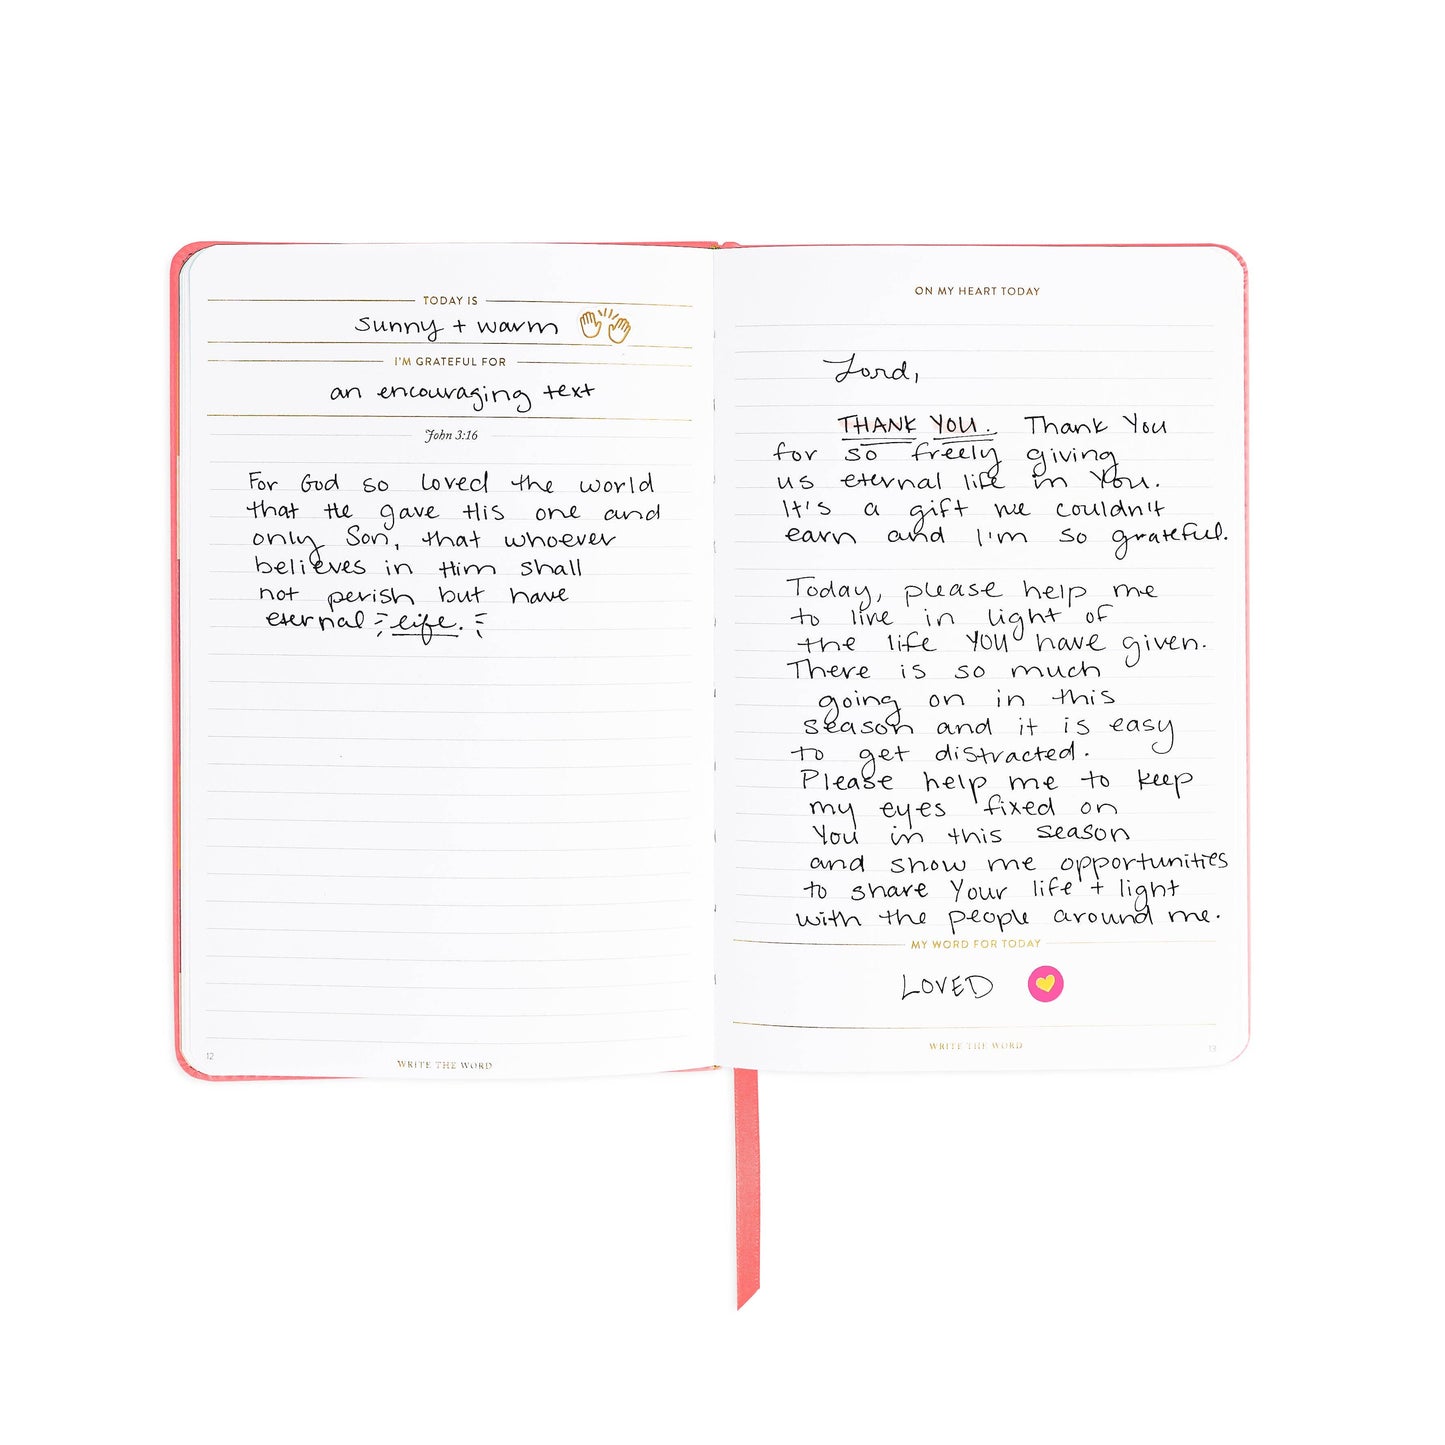 TODAY IS
sunny + warm
I'M GRATEFUL FOR
an encouraging text
John 3:16
For God so loved the world
that He gave His one and
only Son, that whoever
believes in Him shall
not perish but have
eternal life.
12
WRITE THE WORD
ON MY HEART TODAY
Lord,
THANK YOU. Thank You
for so freely giving
us eternal life in You.
It's a gift we couldn't
earn and I'm so grateful.
Today, please help me
to live in light of
the life YOU have given.
There is so much
going on in this
season and it is easy
to get distracted.
Please help me to keep
my eyes fixed on
You in this season
and show me opportunities
to share Your life + light
with the people around me.
MY WORD FOR TODAY
LOVED
WRITE THE WORD
13